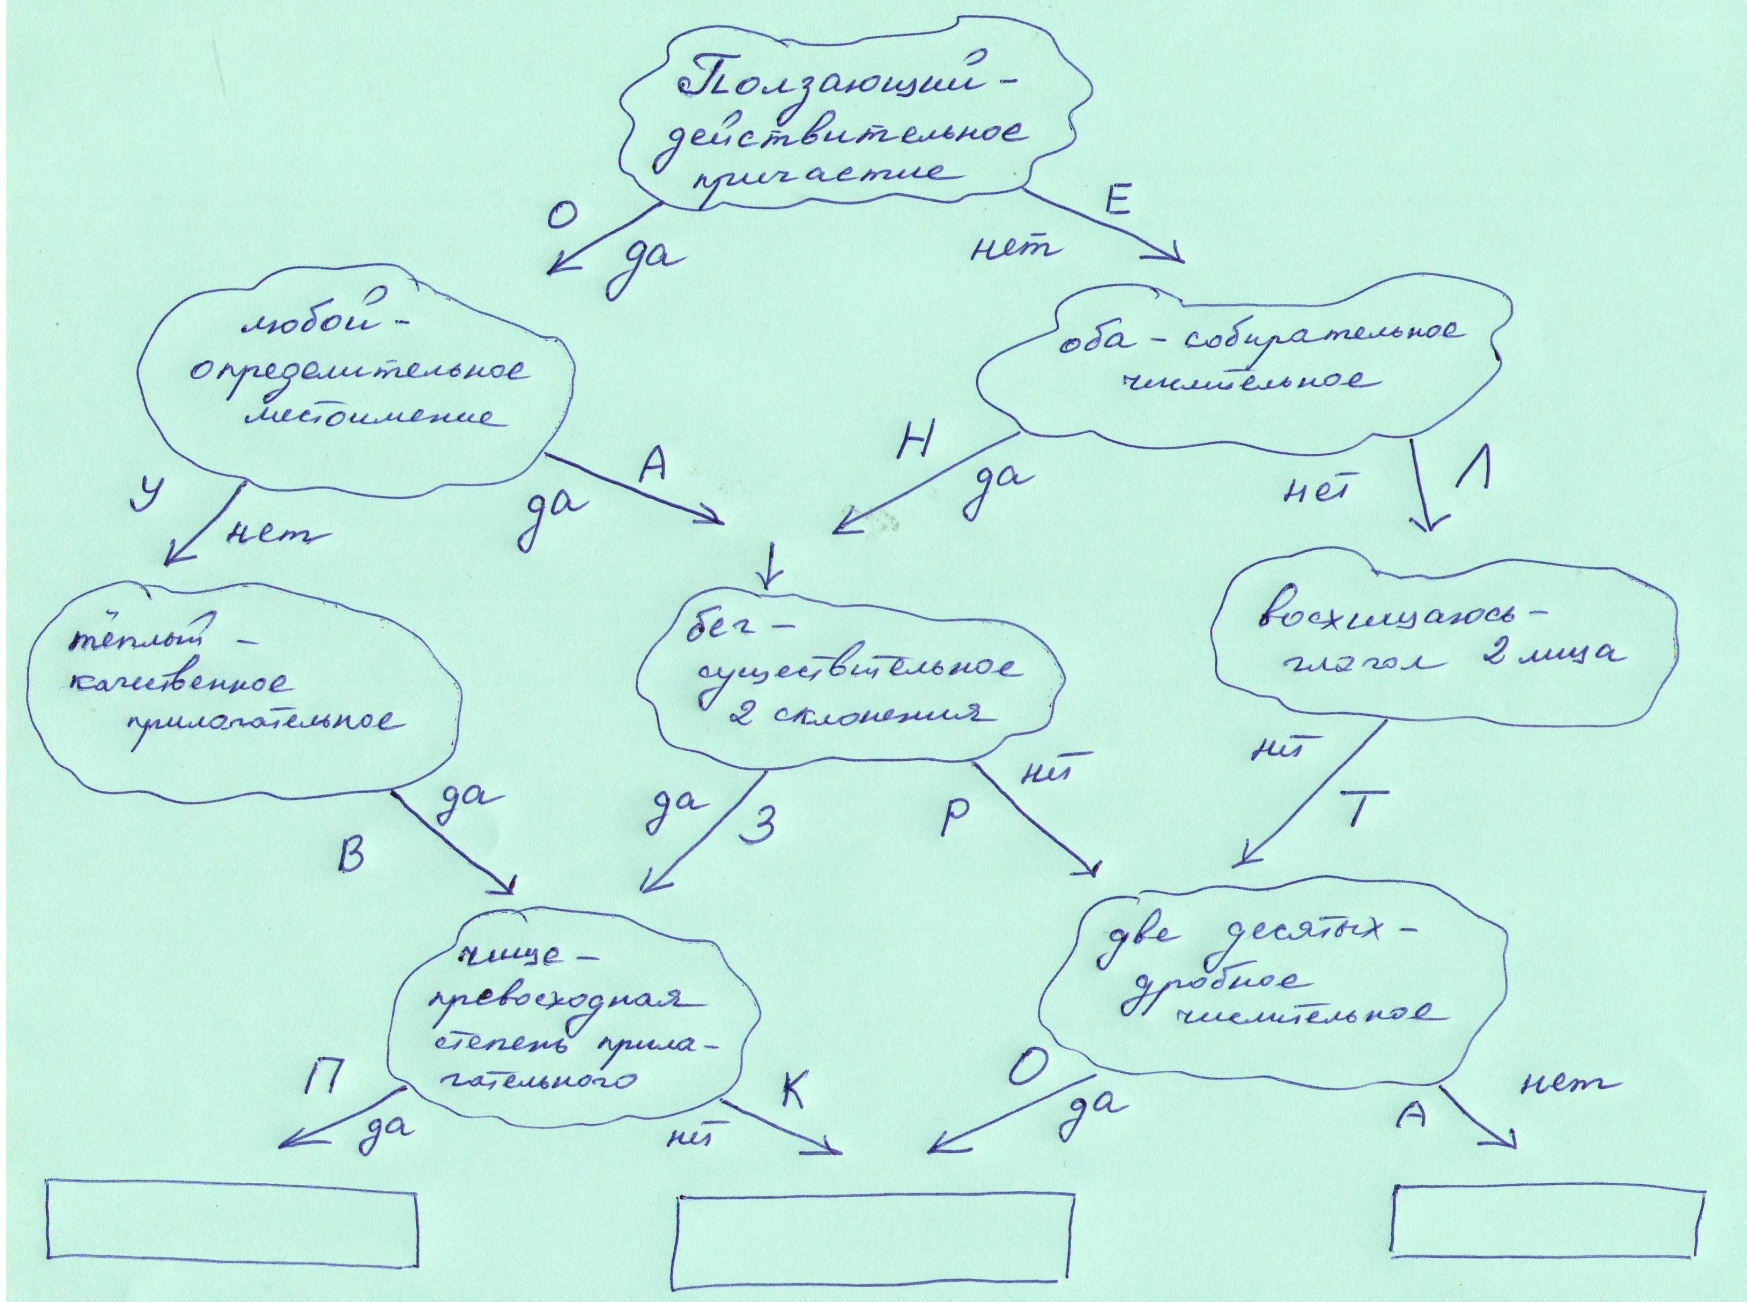 Ползающий -
действительное
причастие
О
да
Е
нет
любой -
определительное
местоимение
оба - собирательное
числительное
У
нет
А
да
Н
да
нет
Л
тёплый -
качественное
прилагательное
бег -
существительное
2 склонения
восхищаюсь -
глагол 2 лица
да
В
да
З
нет
Р
нет
Т
чище -
превосходная
степень прила-
гательного
две десятых -
дробное
числительное
П
да
К
нет
О
да
А
нет